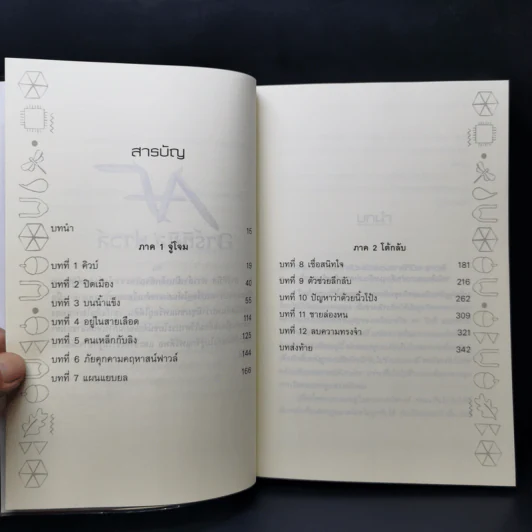 สารบัญ
บทนำ 15
ภาค 1 จู่โจม
บทที่ 1 คิวบ์ 19
บทที่ 2 ปิดเมือง 40
บทที่ 3 บนน้ำแข็ง 55
บทที่ 4 อยู่ในสายเลือด 114
บทที่ 5 คนเหล็กกับลิง 123
บทที่ 6 ภัยคุกคามคฤหาสน์ฟาวล์ 144
บทที่ 7 แผนแยบยล 166
ภาค 2 โต้กลับ
บทที่ 8 เชื่อสนิทใจ 181
บทที่ 9 ตัวช่วยลึกลับ 216
บทที่ 10 ปัญหาว่าด้วยนิ้วโป้ง 262
บทที่ 11 ชายล่องหน 309
บทที่ 12 ลบความทรงจำ 321
บทส่งท้าย 342